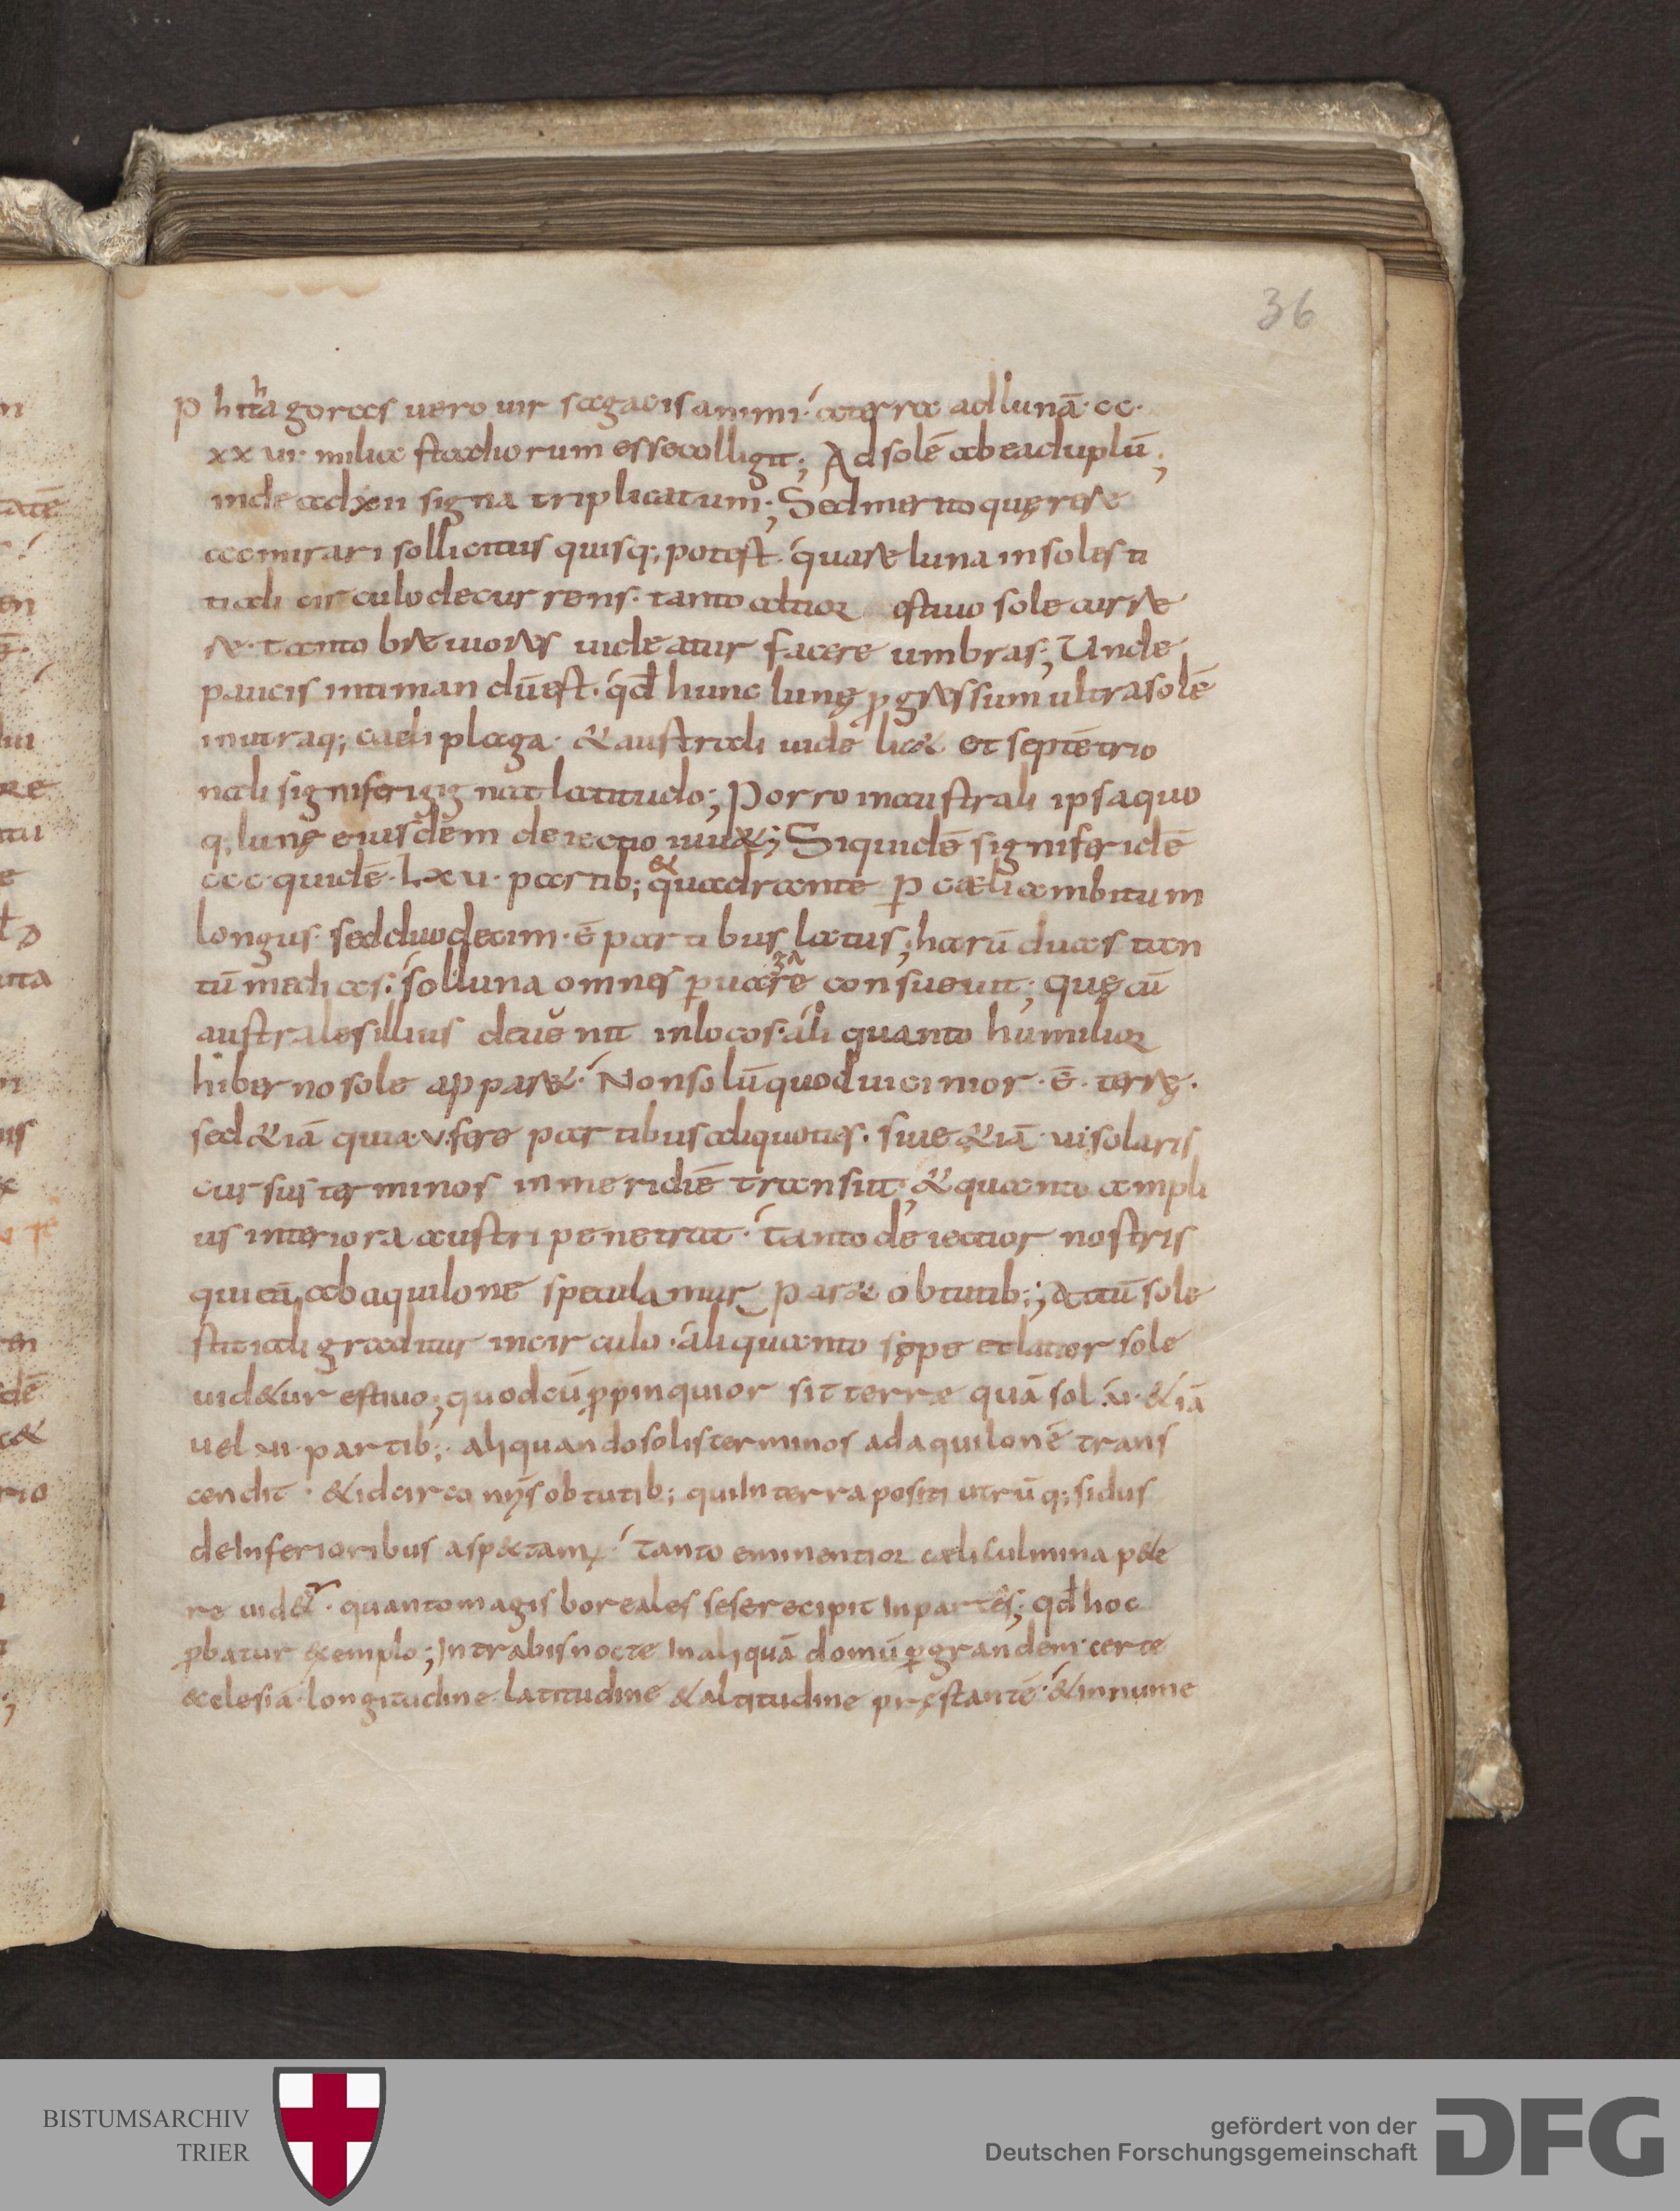 36
Phithagoras uero uir sagacis animi · a terra ad lunā · cc ·
xxui · milia stadiorum esse colligit ; Ad solē ab ea duplū ;
inde ad xii signa triplicatum ; Sed merito quęrere
ac mirari sollicitus quisq; potest · quare luna in solesti
tiali circulo decurrens · tanto altior estiuo sole curre
re · tanto breuiores uideatur facere umbras ; Unde
paucis intimandū est · qđ hunc lunę ꝓgressum ultra solē
in utraq; caeli plaga · & australi uidelic& et septētrio
nali signiferi gignat latitudo ; Porro in australi ipsa quo
q; lunę eiusdem deiectio iuu& ; Siquidē signifer idē
ccc · quidē · lxu · partib; & quadrante ꝑ cæli ambitum
longus · sed duodecim · ē partibus latus ; harū duas tan
tū medias · sol luna omnes ꝑuagare consueuit ; quę cū
australes illius deuēnit in locos · ali quanto humilior
hiberno sole appar& · Non solū quod uicinior · ē · terrę ·
sed &iā quia · v · fere partibus aliquoties · siue &iā · ui · solaris
cursus terminos in meridiē transiit ; & quanto ampli
us interiora austri penetrat · tanto deiectior nostris
qui eā ab aquilone speculamur par& obtutib; ; At cū sole
stitiali graditur in circulo · ali quanto sępe et latior sole
uid&ur estiuo ; quod cū ꝓpinquior sit terræ quā sol · v · &iā
uel · ui · partib; · aliquando solis terminos ad aquilonē trans
cendit · & idcirco nr̄is obtutib; qui In terra positi utrūq; sidus
de Inferioribus asp&tamꝰ · tanto eminentior cæli culmina p&e
re uid&r · quanto magis boreales sese recipit In partes ; qđ hoc
ꝓbatur exemplo ; Intrabis nocte In aliquā domū ꝑgrandem · certe
&clesiā · longitudine · latitudine & altitudine pręstantē · & innume
BISTUMSARCHIV
TRIER
gefördert von der
Deutschen Forschungsgemeinschaft
DFG